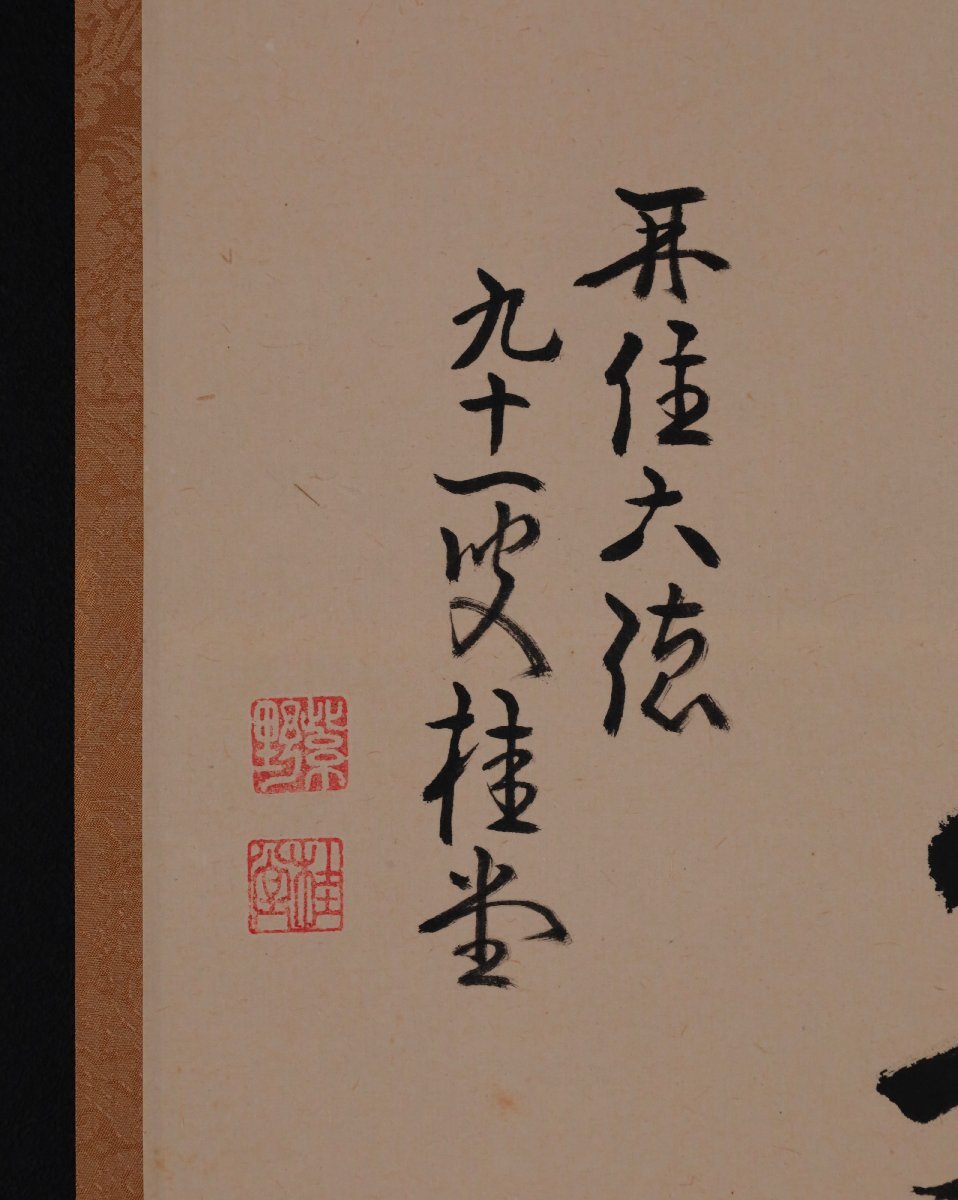 再住大徳
九十一叟桂堂
紫野
桂堂